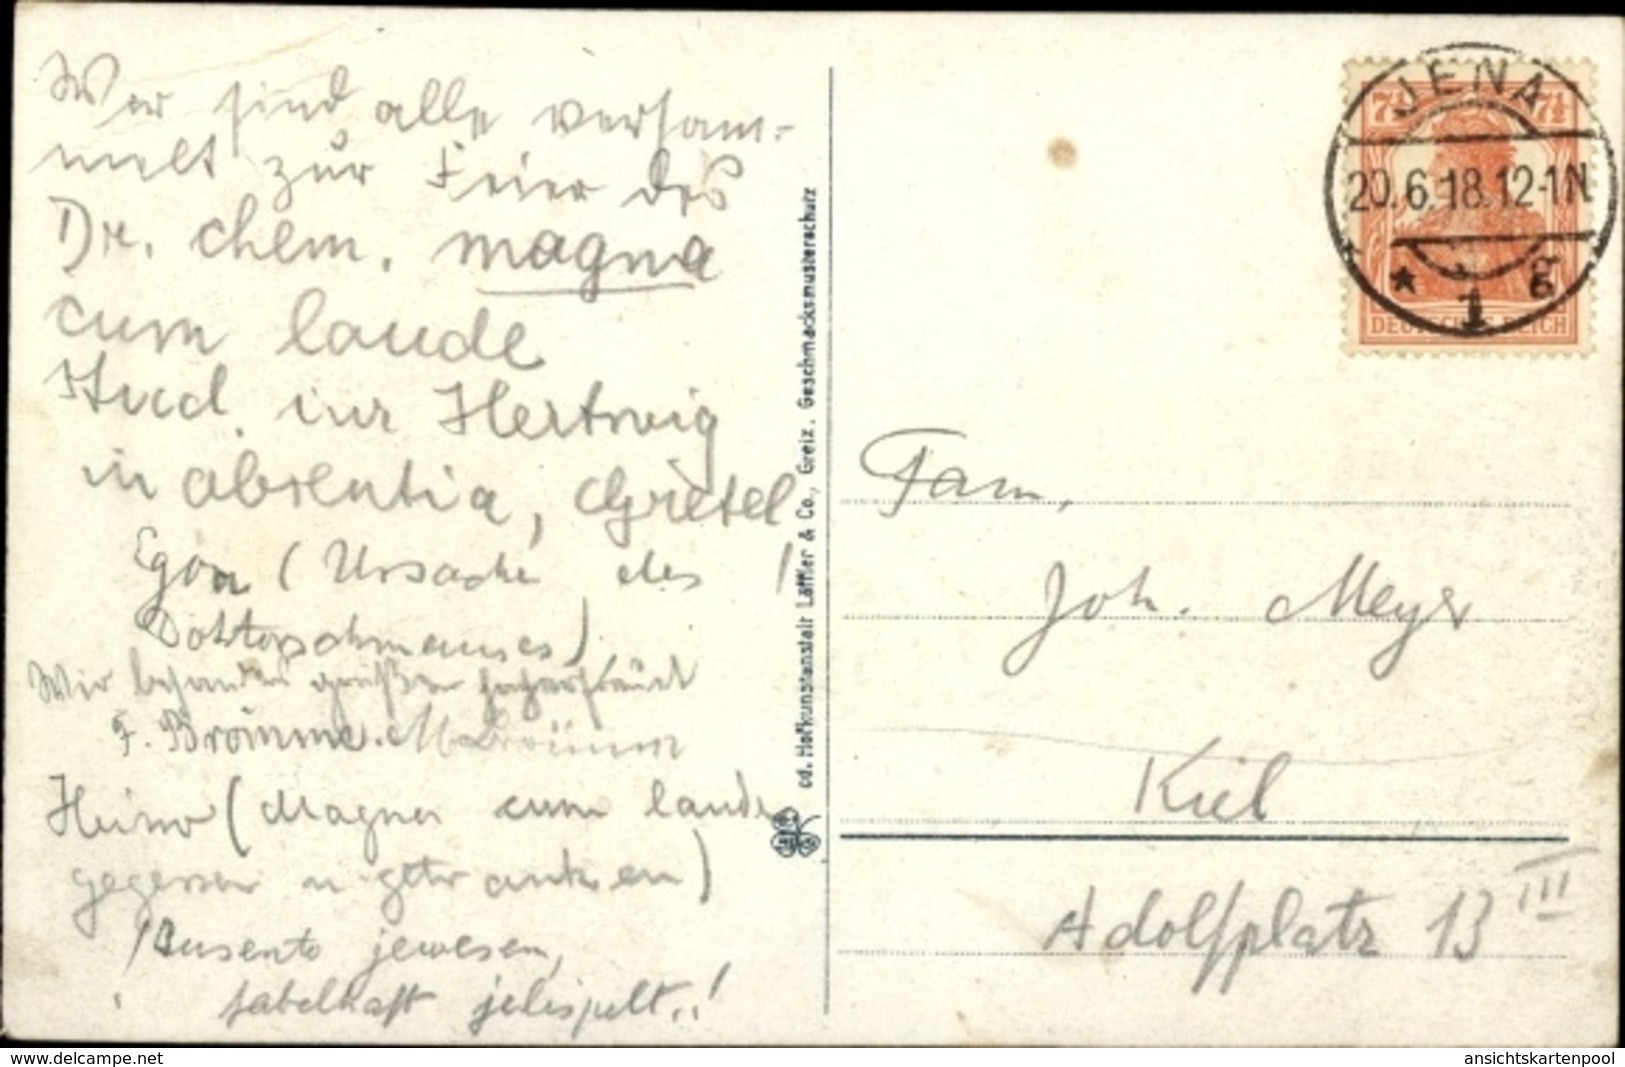 Wir sind alle versam-
melt zur Feier des
Dr. chem. magna
cum laude
Stud. iur Hertwig
in absentia, Gretel
Egon (Ursache des
Doktorschmauses)!
Wir grüßen
F. Brömme. M. Brömme
Heino (Magna cum laude
gegessen u getrunken)
Busento jewesen,
fabelhaft jelispelt..!
cd. Hofkunstanstalt Löffler & Co., Greiz. Geschmacksmusterschutz
JENA
7½ 7½
20.6.18.12-1N
* 1 g
DEUTSCHES REICH
Fam.
Joh. Meyer
Kiel
Adolfplatz 13 III
www.delcampe.net
ansichtskartenpool